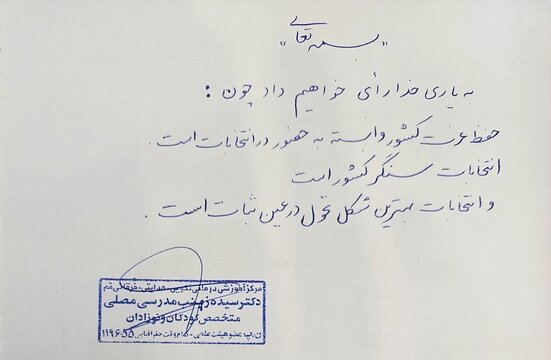 «بسمه تعالی»
به یاری خدا رأی خواهیم داد چون :
حفظ عزت کشور وابسته به حضور در انتخابات است .
انتخابات سنگر کشور است
و انتخابات بهترین شکل تحول در عین ثبات است .
مرکز آموزشی درمانی نکویی-هدایتی-فرقانی قم
دکتر سیده زینب مدرسی مصلی
متخصص کودکان و نوزادان
ن.پ عضو هیئت علمی - تمام وقت جغرافیایی